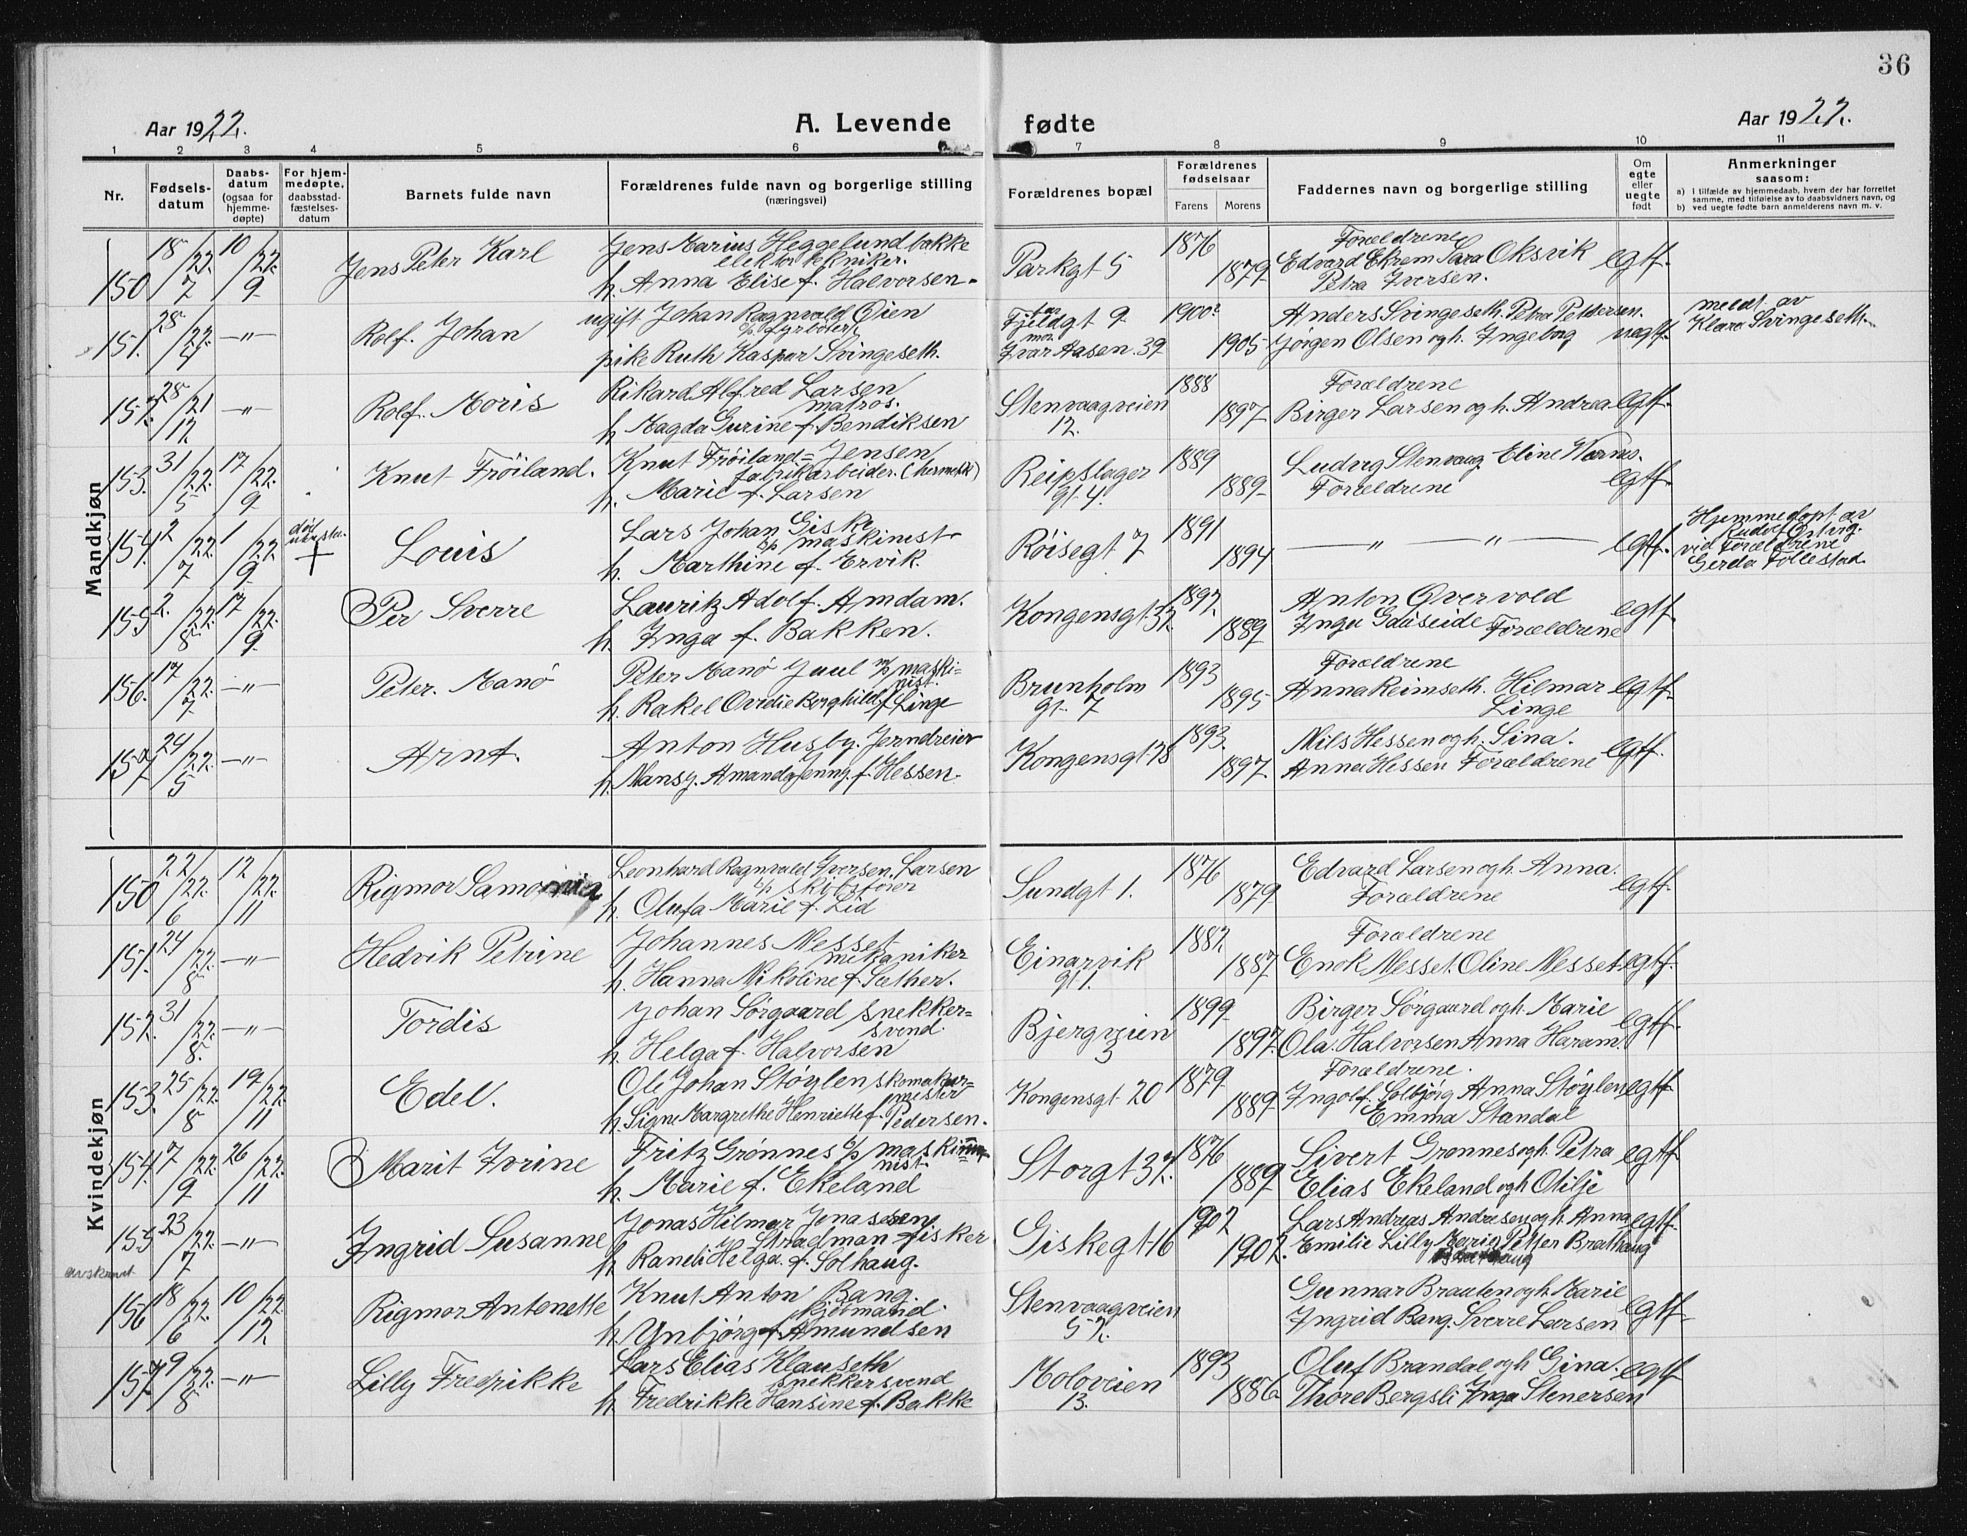 36
Aar 1922.
A. Levende fødte
Aar 1922.
1 2 3 4 5 6 7 8 9 10 11
Nr.
Fødsels-
datum
Daabs-
datum
(ogsaa for
hjemme-
døpte)
For hjem-
medøpte,
daabsstad-
fæstelses-
datum
Barnets fulde navn
Forældrenes fulde navn og borgerlige stilling
(næringsvei)
Forældrenes bopæl
Forældrenes
fødselsaar
Farens Morens
Faddernes navn og borgerlige stilling
Om
egte
eller
uegte
født
Anmerkninger
saasom:
a) I tilfælde av hjemmedaab, hvem der har forrettet
samme, med tilføielse av to daabsvidners navn, og
b) ved uegte fødte barn anmelderens navn m. v.
Mandkjøn
150 18/7 22. 10/9 22. Jens Peter Karl
Jens Marius Heggelundbakke
elektrotekniker.
h. Anna Elise f. Halvorsen.
Parkgt 5 1876 1879
Forældrene
Edvard Ekrem Sara Oksvik
Petra Iversen.
egtf.
151. 28/4 22. -"- Rolf. Johan
ugift Johan Ragnvald Øien
s/p fyrbøter
pike Ruth Kaspara Svingeseth.
far
Fjeldgt 9.
mor
Ivar Aasen. 39 1900? 1905
Anders Svingeseth. Petra Pettersen.
Jørgen Olsen og h. Ingeborg
uegtf.
meldt av
Klara Svingeseth.
152. 28/12 21 -"- Rolf. Moris
Rikard Alfred Larsen
matros.
h Magda Gurine f. Bendiksen
Stenvaagveien
12. 1888 1897
Forældrene
Birger Larsen og h. Andrea.
egtf.
153. 31/5 22. 17/9 22. Knut Frøiland.
Knut Frøiland=Jensen
fabrikarbeider. (hermetik)
h. Marie f. Larsen
Reipslager
gt. 4. 1889 1889
Ludvig Stenvaag Eline Warnes.
Forældrene
egtf.
154. 2/7 22. 1/9 22 Louis
Lars Johan Giske
s/p maskinist
h. Marthine f. Ervik.
Røisegt 7 1891 1894
— " — " —
egtf.
Hjemmedøpt av
vid Forældrene
Gerda Follestad.
155 2./8 22. 17/9 22. Per Sverre
Lauritz Adolf. Amdam.
h. Inga f. Bakken.
Kongensgt. 32. 1892. 1889
Anton Overvold
Inga Gdøseide Forældrene
egtf.
156. 17/7 22. -"- Peter. Manø
Peter Manø Juul m/p maski=
nist.
h. Rakel Ovidie Borghild f Linge
Brunholm
gt. 7 1893 1895
Forældrene
Anna Reimseth. Hilmar
Linge
egtf.
157 24/5 22. -"- Arnt.
Anton Husby. Jerndreier
h. Nansy. Amanda Jenny f. Hessen.
Kongensgt 78 1893. 1897
Nils Hessen og h. Sina.
Anna Hessen Forældrene
egtf.
Kvindekjøn
150 22/6 22. 12/11 22.
Leonhard Ragnvald Iversen. Larsen
s/p skibsfører
h. Olufa Marie f. Lid
Rigmor
Sundgt 1. 1876 1879
Edvard Larsen og h. Anna.
Forældrene
egtf.
151. 24/8 22. -"- Hedvik Petrine
Johannes Messet
mekaniker
h. Hanna Nikoline f. Sæther.
Einarvik
gt 1. 1882. 1887
Forældrene
Enok Messet. Oline Messet.
egtf.
152. 31/8. 22. -"- Tordis
Johan Sørgaard snekker=
svend.
h Helga f. Halvorsen
Bjergveien
3 1899 1897.
Birger Sørgaard og h. Marie
Ola. Halvorsen Anna Haram.
egtf.
153. 25/8 22. 19/11 22. Edel.
Ole Johan Støylen skomaker=
mester
h. Signe Margrethe Henriette f. Pedersen.
Kongensgt 20 1879 1889
Forældrene.
Ingolf. Solbjørg Anna Støylen
Emma Standal
egtf.
154. 7/9 22. 26/11 22. Marit Irine
Fritz Grønnes s/p maski
nist.
h. Marie f. Ekeland
Storgt 32. 1876 1889
Sivert Grønnes og h. Petra
Elias Ekeland og h Otilje
egtf.
155 23/7 22. -"- Ingrid Susanne
Jonas Hilmar Jonassen
Straelman fisker
h Randi Helga. f. Solhaug.
Giskegt 16 1902 1902.
Lars Andreas Andresen og h. Anna
Emilie Lilly Marie Petter Brathaug
egtf.
avskrevet
156 18/6 22. 10/12 22. Rigmor Antonette
Knut Anton Bang.
h. Unbjørg f. Amundsen
Stenvaagveien
52.
Gunnar Braaten og h Marie
Ingrid Bang. Sverre Larsen
egtf.
157 9/8 22. -"- Lilly Fredrikke
Lars Elias Klauseth
snekkersvend
h. Fredrikke Hansine f. Bakke
Moloveien
13. 1893 1886
Oluf Brandal og h Gina.
Thore Bergsli Inga Stenersen
egtf